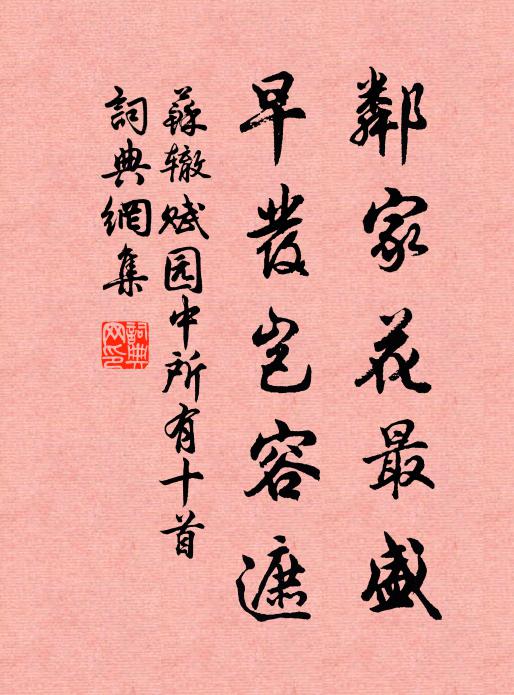 鄰家花最盛
早發豈容遮
蘇辙赋园中所有十首
詞典網集
詞典
网印